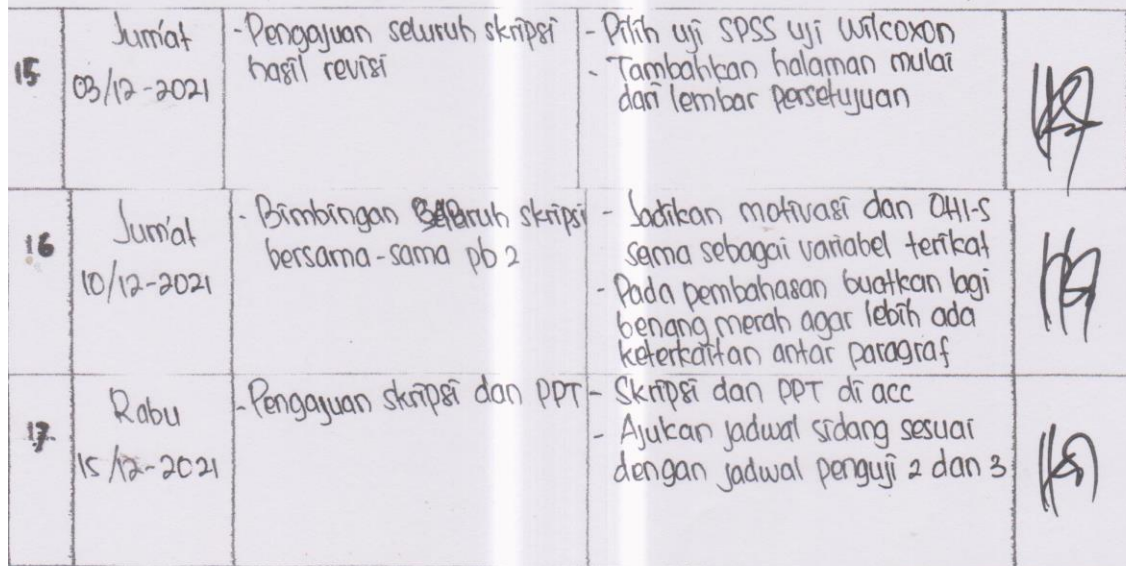 15
Jum'at
03/12-2021
- Pengajuan seluruh skripsi
hasil revisi
- Pilih uji SPSS uji Wilcoxon
- Tambahkan halaman mulai
dari lembar persetujuan
16
Jum'at
10/12-2021
- Bimbingan skripsi
bersama-sama pb 2
- Jadikan motivasi dan OHI-S
sama sebagai variabel terikat
- Pada pembahasan buatkan lagi
benang merah agar lebih ada
keterkaitan antar paragraf
17
Rabu
15/12-2021
- Pengajuan skripsi dan PPT
- Skripsi dan PPT di acc
- Ajukan jadwal sidang sesuai
dengan jadwal penguji 2 dan 3